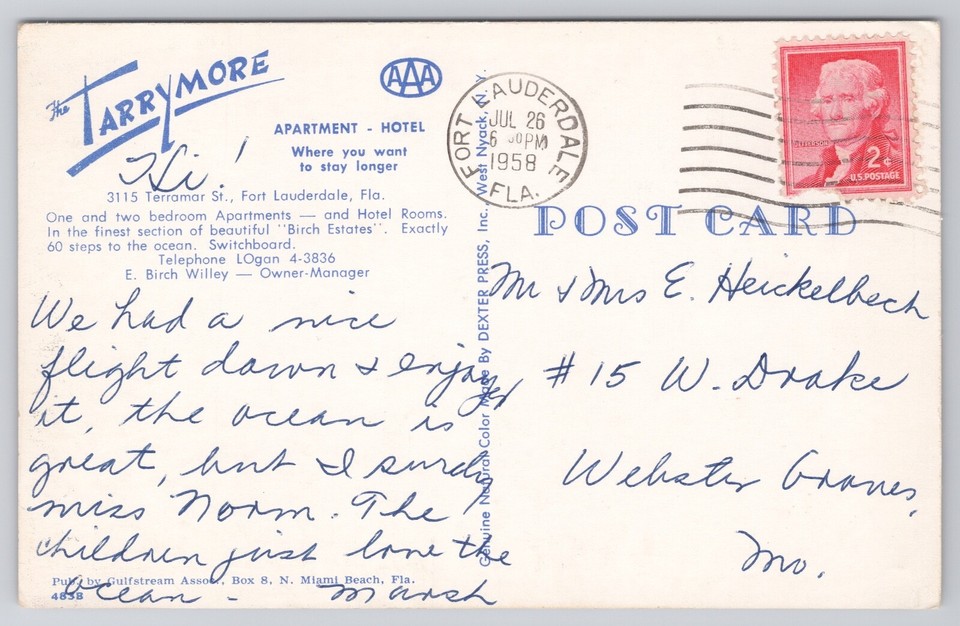 The TARRYMORE
AAA
APARTMENT - HOTEL
Where you want
to stay longer
Hi!
3115 Terramar St., Fort Lauderdale, Fla.
One and two bedroom Apartments — and Hotel Rooms.
In the finest section of beautiful "Birch Estates". Exactly
60 steps to the ocean. Switchboard.
Telephone LOgan 4-3836
E. Birch Willey — Owner-Manager
We had a nice
flight down & enjoyed
it, the ocean is
great, but I surely
miss Norm. The
children just love the
ocean - Marsh
Pub. by Gulfstream Assoc., Box 8, N. Miami Beach, Fla.
4838
Genuine Natural Color Made By DEXTER PRESS, Inc., West Nyack, N. Y.
FORT LAUDERDALE
JUL 26
6 30 PM
1958
FLA.
JEFFERSON
2¢
U.S. POSTAGE
POST CARD
Mr & Mrs E. Heickelbech
#15 W. Drake
Webster Groves,
Mo.